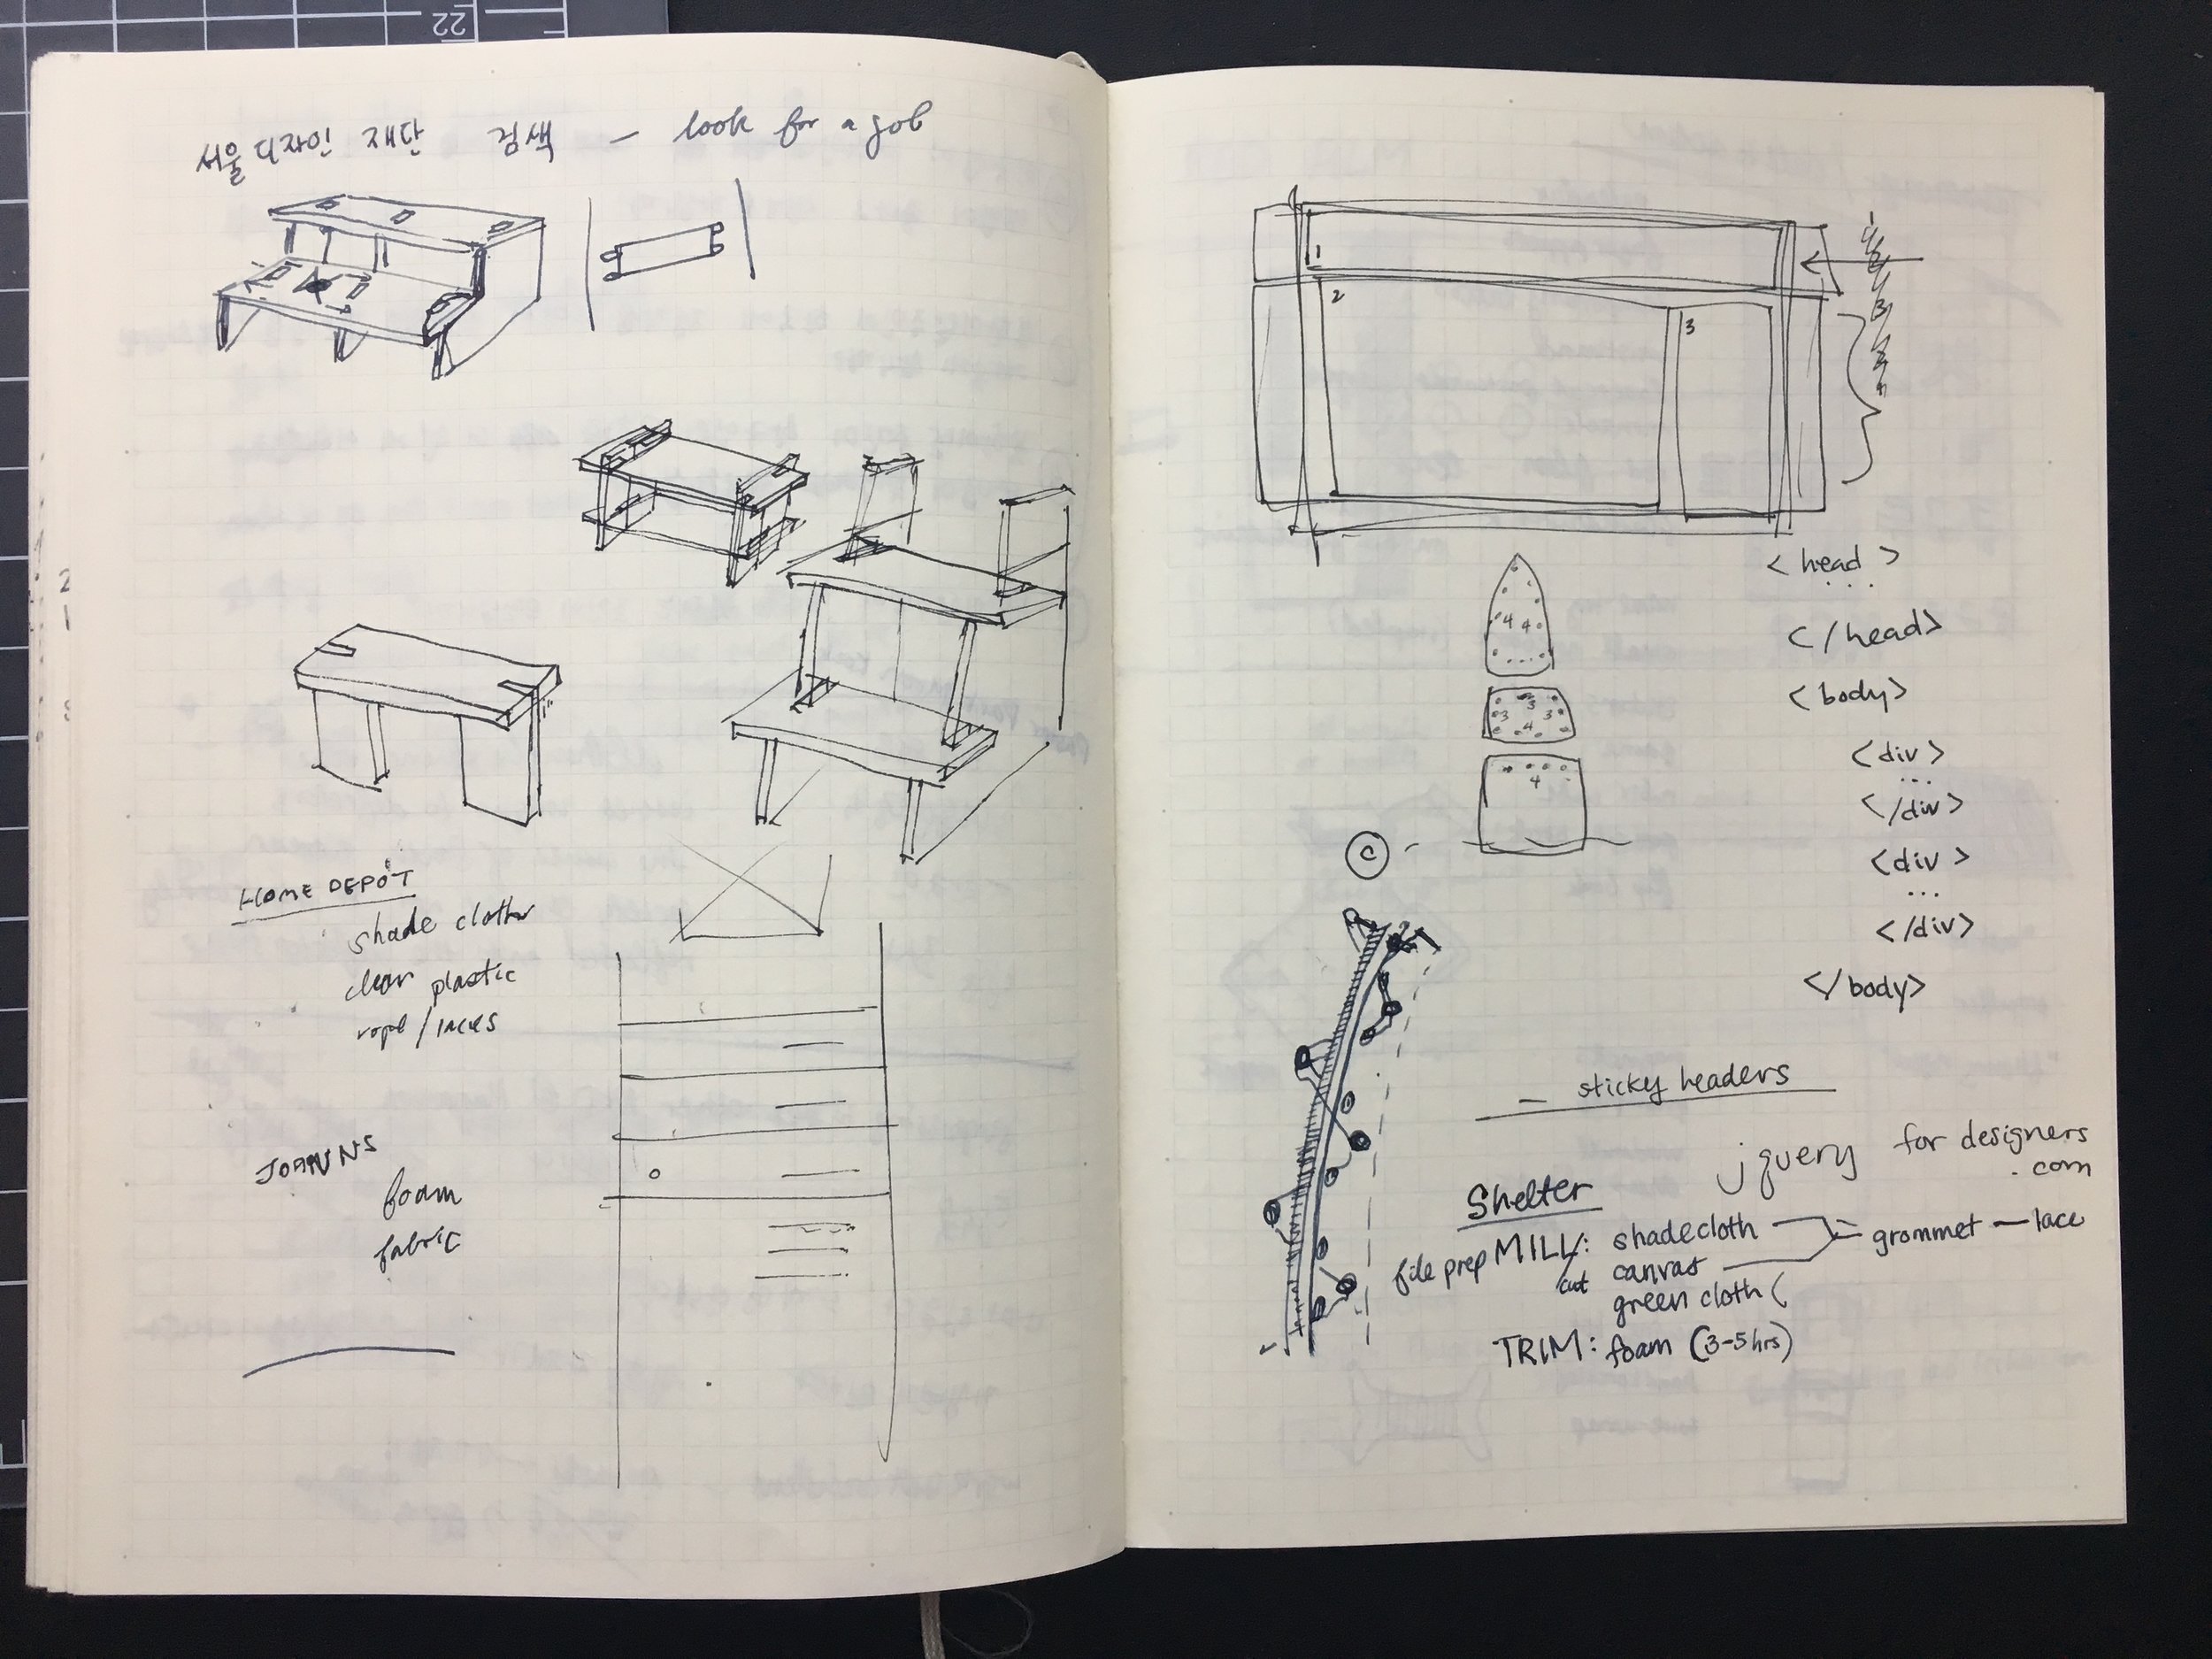 서울디자인 재단 검색 — look for a job
HOME DEPOT
shade cloth
clear plastic
rope / laces
JOANNS
foam
fabric
1
2
3
<head>
...
</head>
<body>
<div>
...
</div>
<div>
...
</div>
</body>
4 4
3 3 3
4
4
C
— sticky headers
jquery for designers
.com
Shelter
file prep MILL: shadecloth = grommet — lace
cut canvas
green cloth (
TRIM: foam (3-5hrs)
22